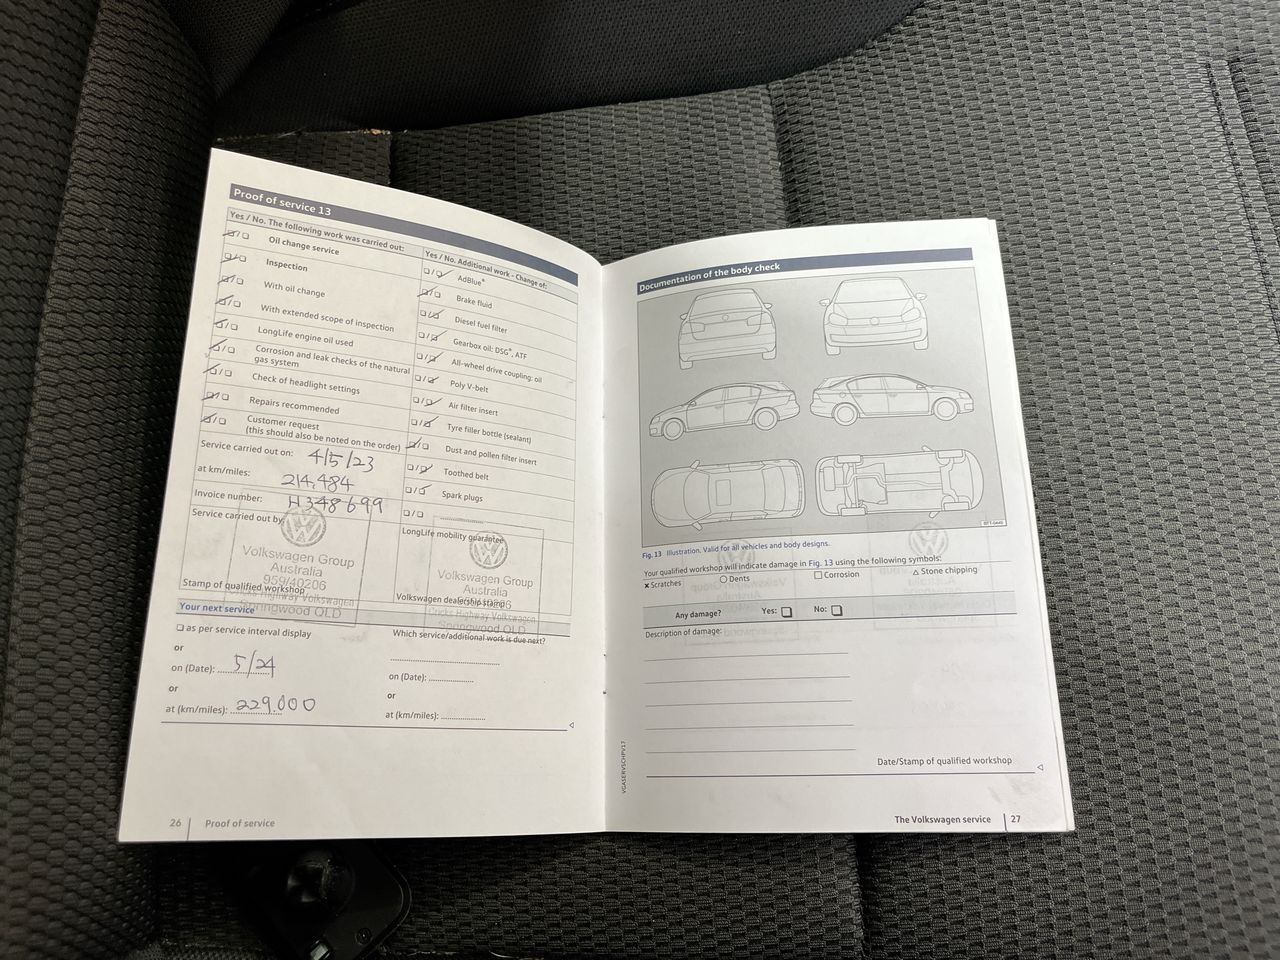 Proof of service 13
Yes / No. The following work was carried out:
Oil change service
Inspection
With oil change
With extended scope of inspection
LongLife engine oil used
Corrosion and leak checks of the natural
gas system
Check of headlight settings
Repairs recommended
Customer request
(this should also be noted on the order)
Service carried out on: 4/5/23
at km/miles: 214,484
Invoice number: H348699
Service carried out by:
Volkswagen Group
Australia
959/40206
Stamp of qualified workshop
Cricks Highway Volkswagen
Springwood QLD
Yes / No. Additional work – Change of:
AdBlue®
Brake fluid
Diesel fuel filter
Gearbox oil: DSG®, ATF
All-wheel drive coupling: oil
Poly V-belt
Air filter insert
Tyre filler bottle (sealant)
Dust and pollen filter insert
Toothed belt
Spark plugs
LongLife mobility guarantee
Volkswagen Group
Australia
Volkswagen dealership stamp
Cricks Highway Volkswagen
Springwood QLD
Your next service
as per service interval display
or
on (Date): 5/24
or
at (km/miles): 229.000
Which service/additional work is due next?
on (Date):
or
at (km/miles):
26 | Proof of service
Documentation of the body check
Fig. 13 Illustration. Valid for all vehicles and body designs.
Your qualified workshop will indicate damage in Fig. 13 using the following symbols:
× Scratches ○ Dents □ Corrosion △ Stone chipping
Any damage? Yes: □ No: □
Description of damage:
Date/Stamp of qualified workshop
VGASERVSCHPV17
The Volkswagen service | 27